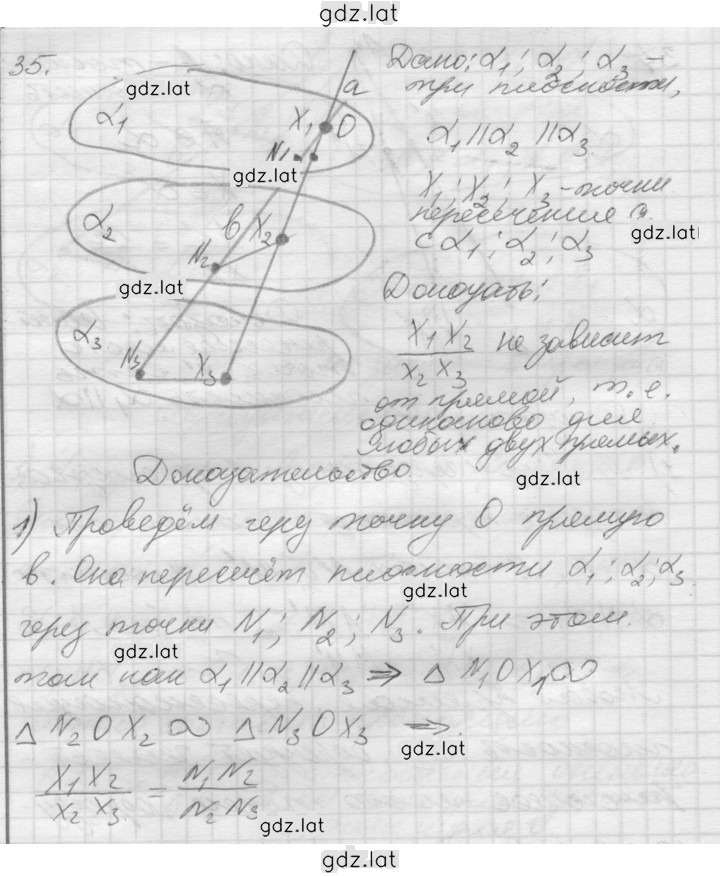 gdz.lat
35.
gdz.lat
a
α₁
X₁ O
N₁
gdz.lat
α₂
в X₂
N₂
gdz.lat
α₃
N₃
X₃
Дано: α₁; α₂; α₃ –
три плоскости,
α₁ || α₂ || α₃.
X₁; X₂; X₃ - точки
пересечения а
gdz.lat
с α₁; α₂; α₃
Доказать:
X₁X₂ / X₂X₃ не зависит
от прямой, т. е.
одинаково для
любых двух прямых.
Доказательство.
gdz.lat
1) Проведём через точку O прямую
в. Она пересечёт плоскости α₁; α₂; α₃
gdz.lat
через точки N₁; N₂; N₃. При этом
gdz.lat
так как α₁ || α₂ || α₃ ⇒ Δ N₁OX₁ ∾
Δ N₂OX₂ ∾ Δ N₃OX₃ ⇒
gdz.lat
X₁X₂ / X₂X₃ = N₁N₂ / N₂N₃
gdz.lat
gdz.lat